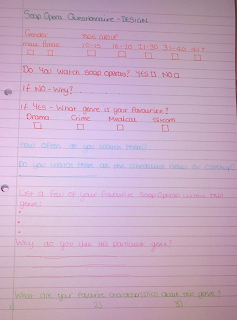 Soap Opera Questionnaire - DESIGN
Gender Age Group
Male Female 10-15 16-20 21-30 31-40 41+
Do You Watch Soap Operas? YES □ NO □
If NO - Why?
If Yes - What genre is your favourite?
Drama Crime Medical Sitcom
How often do you watch them?
Do you watch them at the scheduled time or catchup?
List a few of your favourite Soap Operas within this genre:
Why do you like this particular genre?
What are your favourite characteristics about this genre?
2) 3)